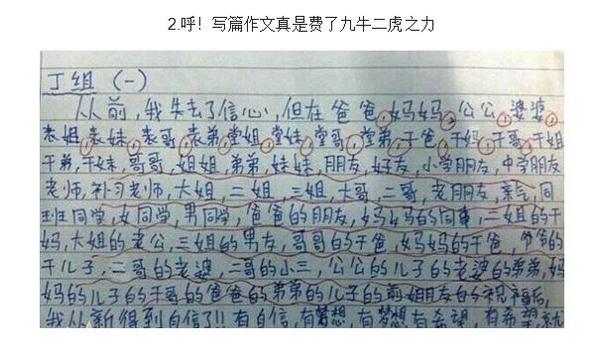 2.呼！写篇作文真是费了九牛二虎之力
丁组 (一)
从前，我失去了信心，但在爸爸，妈妈，公公，婆婆，
表姐，表妹，表哥，表弟，堂姐，堂妹，堂哥，堂弟，干爸，干妈，干哥，干姐
干弟，干妹，哥哥，姐姐，弟弟，妹妹，朋友，好友，小学朋友，中学朋友
老师，补习老师，大姐，二姐，三姐，大哥，二哥，老朋友，亲气，同
班同学，女同学，男同学，爸爸的朋友，妈妈的同事，二姐的干
妈，大姐的老公，三姐的男友，哥哥的干爸，妈妈的干爸，爷爷的
干儿子，二哥的老婆，二哥的小三，公公的儿子的老婆的弟弟，妈
妈的儿子的干哥的爸爸的弟弟的儿子的前姐朋友的祝福后，
我从新得到自信了!! 有自信，有梦想，有梦想有希望，有希望，就